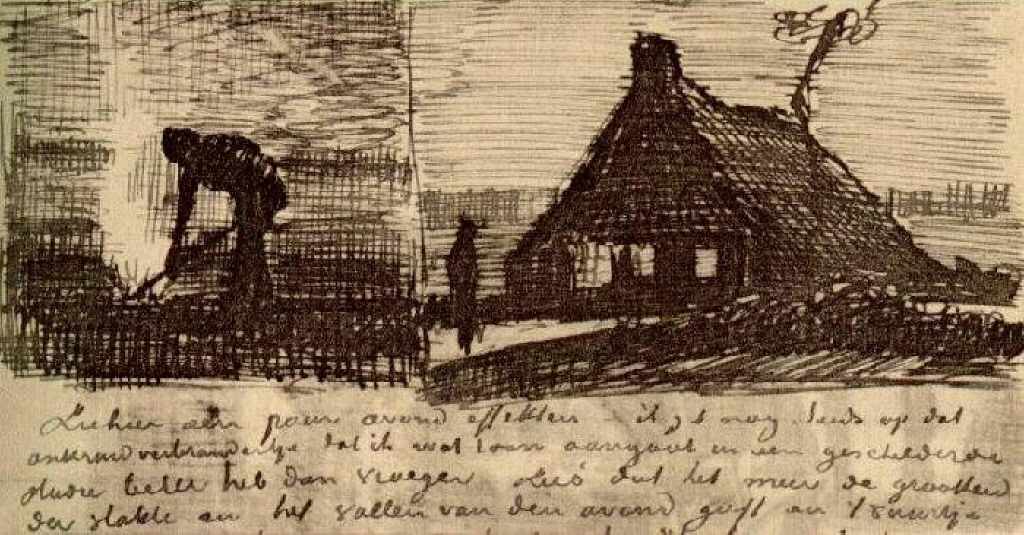 Ziehier een paar avond effekten ik zit nog steeds op dat
onkruidverbrandertje dat ik wat toon aangaat in een geschilderde
studie beter heb dan vroeger Zoó dat het meer de grootheid
der vlakte en het vallen van den avond geeft en 't vuurtje